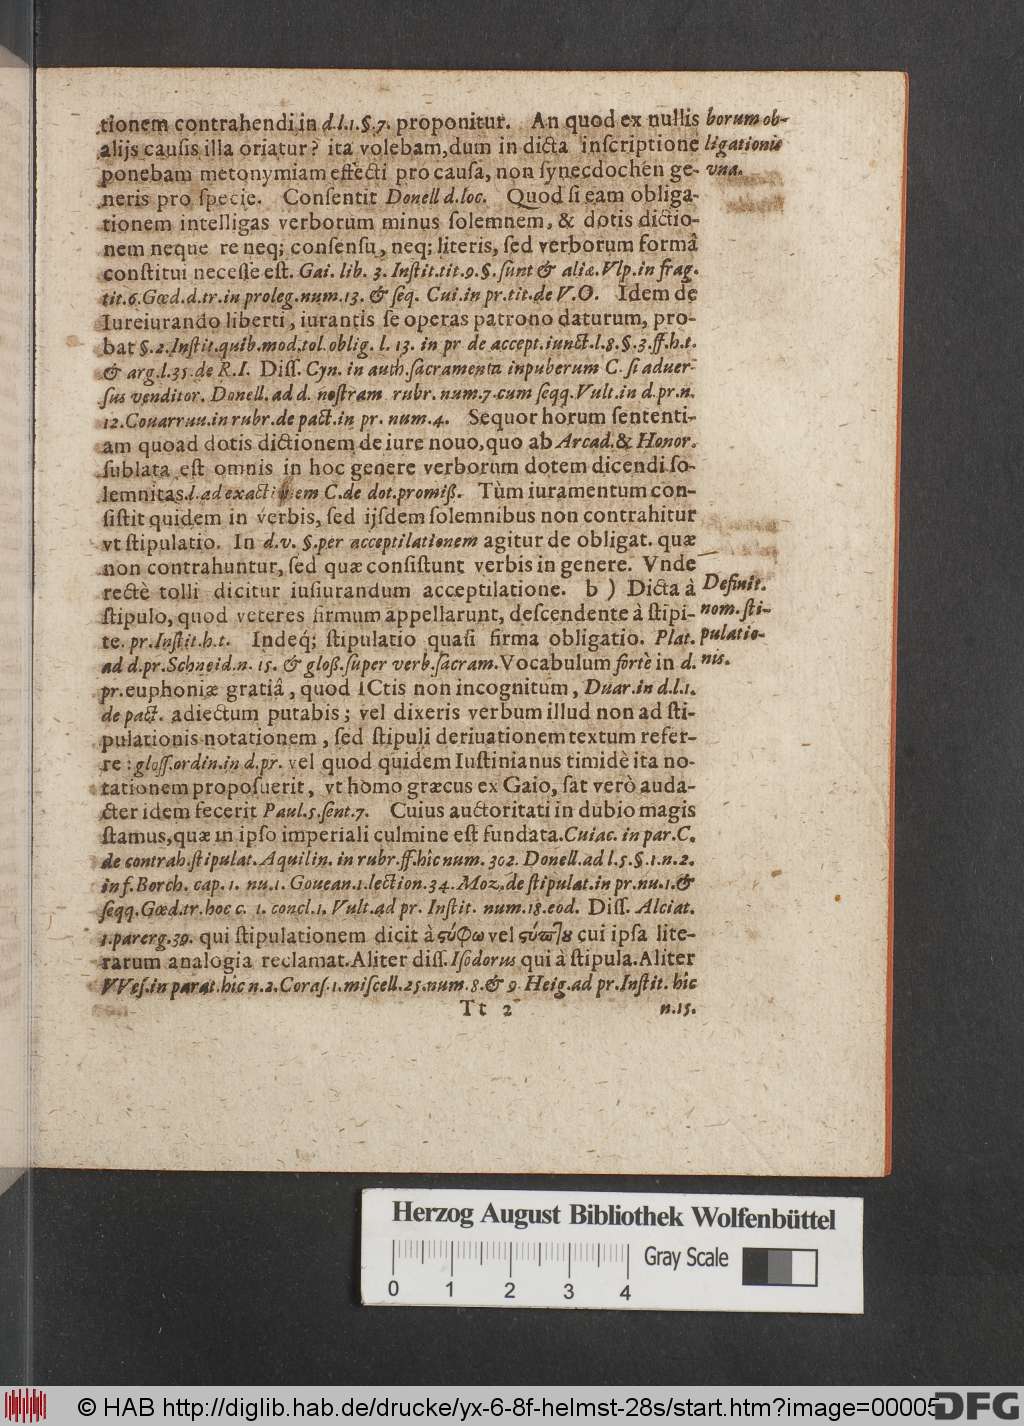 tionem contrahendi in d.l.1.§.7. proponitur. An quod ex nullis
alijs causis illa oriatur? ita volebam, dum in dicta inscriptione
ponebam metonymiam effecti pro causa, non synecdochen ge-
neris pro specie. Consentit Donell d.loc. Quod si eam obliga-
tionem intelligas verborum minus solemnem, & dotis dictio-
nem neque re neq; consensu, neq; literis, sed verborum formâ
constitui necesse est. Gai. lib. 3. Instit.tit.9.§.sunt & aliæ.Vlp.in frag.
tit.6.Gœd.d.tr.in proleg.num.13. & seq. Cui.in pr.tit.de V.O. Idem de
Iureiurando liberti, iurantis se operas patrono daturum, pro-
bat §.2.Instit.quib.mod.tol.oblig. l. 13. in pr de accept.iunct.l.8.§.3.ff.h.t.
& arg.l.35.de R.I. Diss. Cyn. in auth.sacramenta inpuberum C. si aduer-
sus venditor. Donell. ad d. nostram rubr. num.7.cum seqq.Vult.in d.pr.n.
12.Couarruu.in rubr.de pact.in pr. num.4. Sequor horum sententi-
am quoad dotis dictionem de iure nouo, quo ab Arcad.& Honor.
sublata est omnis in hoc genere verborum dotem dicendi so-
lemnitas.l.ad exactionem C.de dot.promiß. Tùm iuramentum con-
sistit quidem in verbis, sed ijsdem solemnibus non contrahitur
vt stipulatio. In d.v. §.per acceptilationem agitur de obligat. quæ
non contrahuntur, sed quæ consistunt verbis in genere. Vnde
rectè tolli dicitur iusiurandum acceptilatione. b ) Dicta à
stipulo, quod veteres firmum appellarunt, descendente à stipi-
te. pr.Instit.h.t. Indeq; stipulatio quasi firma obligatio. Plat.
ad d.pr.Schneid.n. 15. & gloß.super verb.sacram. Vocabulum fortè in d.
pr. euphoniæ gratiâ, quod ICtis non incognitum, Duar.in d.l.1.
de pact. adiectum putabis; vel dixeris verbum illud non ad sti-
pulationis notationem, sed stipuli deriuationem textum refer-
re: gloss.ordin.in d.pr. vel quod quidem Iustinianus timidè ita no-
tationem proposuerit, vt homo græcus ex Gaio, sat verò auda-
cter idem fecerit Paul.5.sent.7. Cuius auctoritati in dubio magis
stamus, quæ in ipso imperiali culmine est fundata. Cuiac. in par.C.
de contrah.stipulat.Aquilin. in rubr.ff.hîc num. 302. Donell.ad l.5.§.1.n.2.
in f.Borch. cap. 1. nu.1. Gouean.1.lection.34. Moz.de stipulat.in pr.nu.1.&
seqq.Gœd.tr.hoc c. 1. concl.1. Vult.ad pr. Instit. num.18.eod. Diss. Alciat.
1.parerg.39. qui stipulationem dicit à ςύφω vel ςύπ]ȣ cui ipsa lite-
rarum analogia reclamat. Aliter diss. Isodorus qui à stipula. Aliter
VVes.in parat.hîc n.2.Coras.1.miscell.25.num.8.& 9 Heig.ad pr.Instit. hîc
Tt 2 n.15.
borum ob-
ligationis
vna.
Definit.
nom. sti-
pulatio-
nis.
Herzog August Bibliothek Wolfenbüttel
Gray Scale
0 1 2 3 4
© HAB http://diglib.hab.de/drucke/yx-6-8f-helmst-28s/start.htm?image=00005
DFG